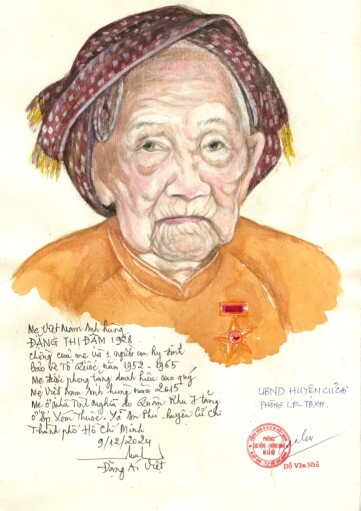 Mẹ Việt Nam Anh hùng
ĐẶNG THỊ ĐẬM 1928
chồng của mẹ và 1 người con hy sinh
bảo vệ Tổ Quốc năm 1952 - 1965
Mẹ được phong tặng danh hiệu cao quý
Mẹ Việt Nam Anh hùng năm 2015
Mẹ ở Nhà Tình Nghĩa do Quân Khu 7 tặng
ở ấp Xóm Thuốc - Xã An Phú - huyện Củ Chi
Thành phố Hồ Chí Minh
9/12/2024
Đặng Ái Việt
UBND HUYỆN CỦ CHI
PHÒNG LĐ-TBXH
Đỗ Văn Nhủ